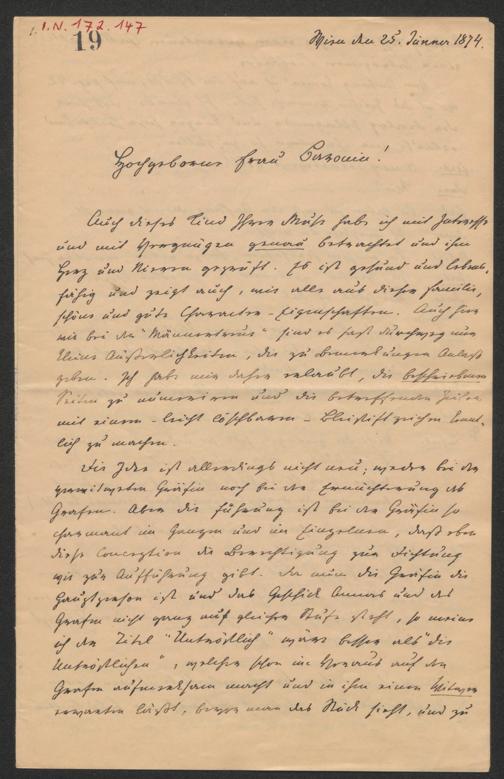 I.N. 172.147
19
Wien den 25. Jänner 1874.
Hochgeborne Frau Baronin!
Auch dieses Kind Ihrer Muse habe ich mit Interesse
und mit Vergnügen genau betrachtet und ihm
Herz und Nieren geprüft. Es ist gesund und lebens-
fähig und zeigt auch, wie alle aus dieser Familie,
schöne und gute Charakter-Eigenschaften. Auch hier
wie bei der "Männertreue" sind es fast durchweg nur
kleine Äußerlichkeiten, die zu Bemerkungen Anlaß
geben. Ich habe mir daher erlaubt, die beschriebenen
Seiten zu numeriren und die betreffenden Zeilen
mit einem - leicht löschbaren - Bleistiftzeichen kennt-
lich zu machen.
Die Idee ist allerdings nicht neu; weder bei der
Gräfin noch bei der Ernüchterung des
Grafen. Aber die Führung ist bei der Gräfin so
charmant im Ganzen und im Einzelnen, daß eben
diese Conception die Berechtigung zur Dichtung
wie zur Aufführung gibt. Da nun die Gräfin die
Hauptperson ist und das Geschick Annas und des
Grafen nicht ganz auf gleicher Stufe steht, so meine
ich der Titel "Untröstlich" wäre besser als "die
Untröstlichen", welcher schon im Voraus auf den
Grafen aufmerksam macht und in ihm einen Witwer
erwarten läßt, bevor man das Stück sieht, und zu